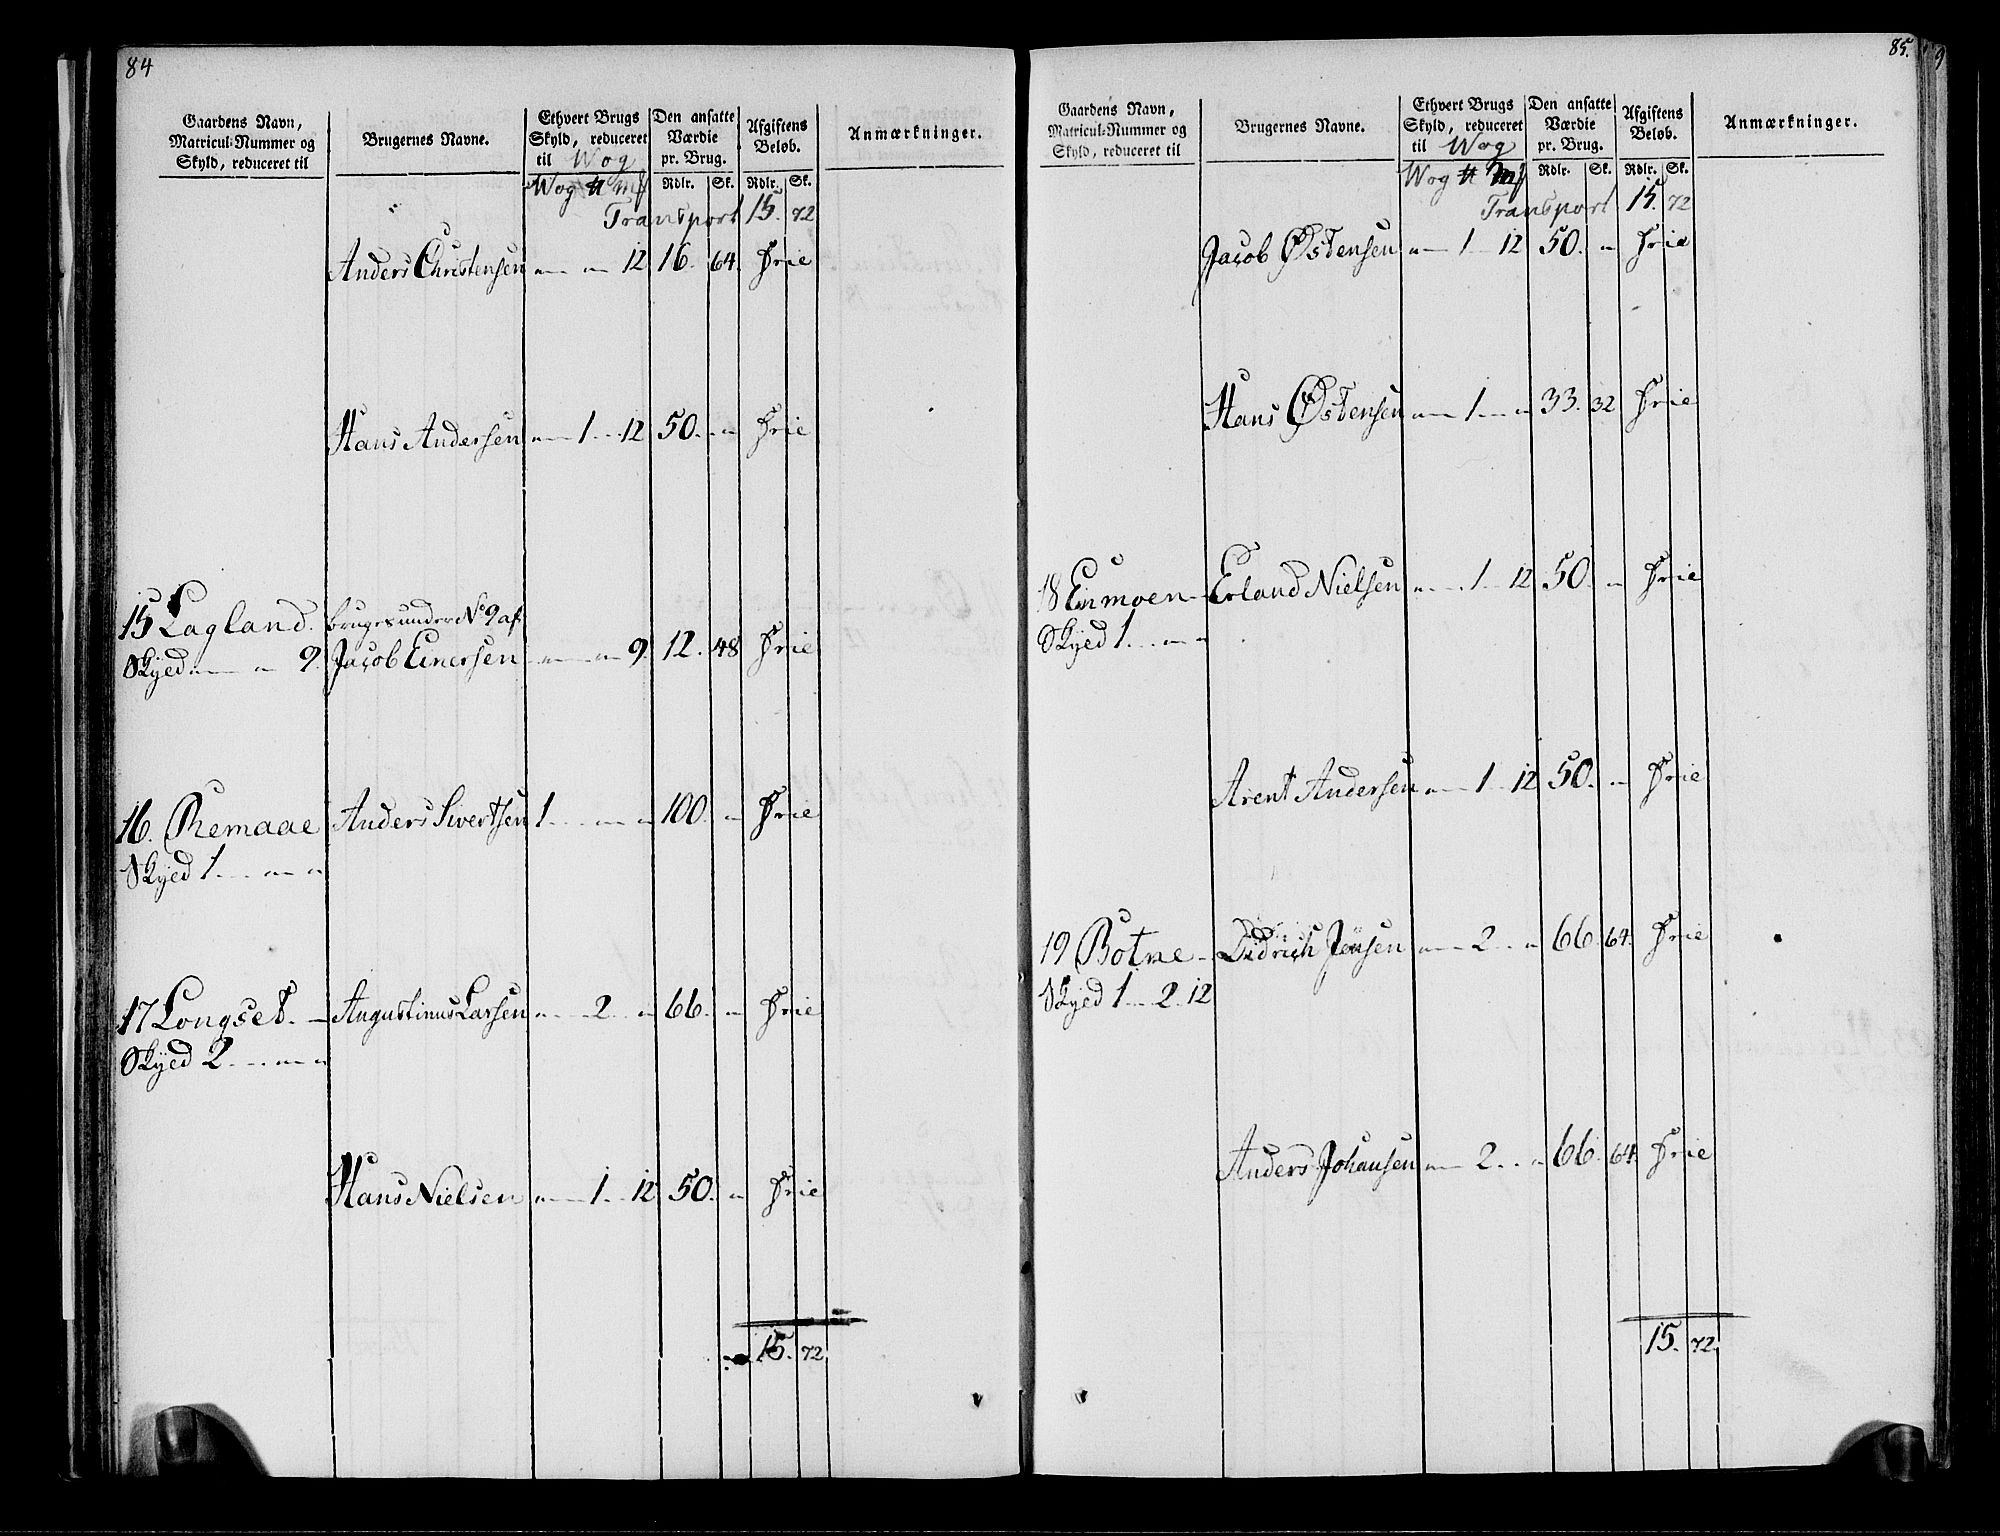 84
Gaardens Navn, Matricul-Nummer og Skyld, reduceret til
Brugernes Navne.
Ethvert Brugs Skyld, reduceret til Wog
Den ansatte Værdie pr. Brug.
Afgiftens Beløb.
Anmærkninger.
Wog ℔ mf Rdlr. Sk. Rdlr. Sk.
Transport 15. 72
Anders Christensen „ „ 12 16. 64. Frie
Hans Andersen „ 1 12 50. „ Frie
15 Lagland. bruges under No 9 af
Skyed „ „ 9. Jacob Einersen „ „ 9. 12. 48 Frie
16. Remaae Anders Sivertsen 1 „ „ 100. „ Frie
Skyed 1 „ „
17 Longset. Augustinus Larsen „ 2 „ 66. „ Frie
Skyed 2 „ „
Hans Nielsen „ 1 12 50. „ Frie
15. 72
85.
Gaardens Navn, Matricul-Nummer og Skyld, reduceret til
Brugernes Navne.
Ethvert Brugs Skyld, reduceret til Wog
Den ansatte Værdie pr. Brug.
Afgiftens Beløb.
Anmærkninger.
Wog ℔ mf Rdlr. Sk. Rdlr. Sk.
Transport 15. 72
Jacob Østensen „ 1 12 50. „ Frie
Hans Østensen „ 1 „ 33. 32 Frie
18 Einmoen Erland Nielsen „ 1 12 50. „ Frie
Skyed 1 „ „
Arent Andersen „ 1 12 50. „ Frie
19 Botne Didrich Jensen „ 2 „ 66 64. Frie
Skyed 1 2 12
Anders Johansen „ 2 „ 66. 64. Frie
15. 72.